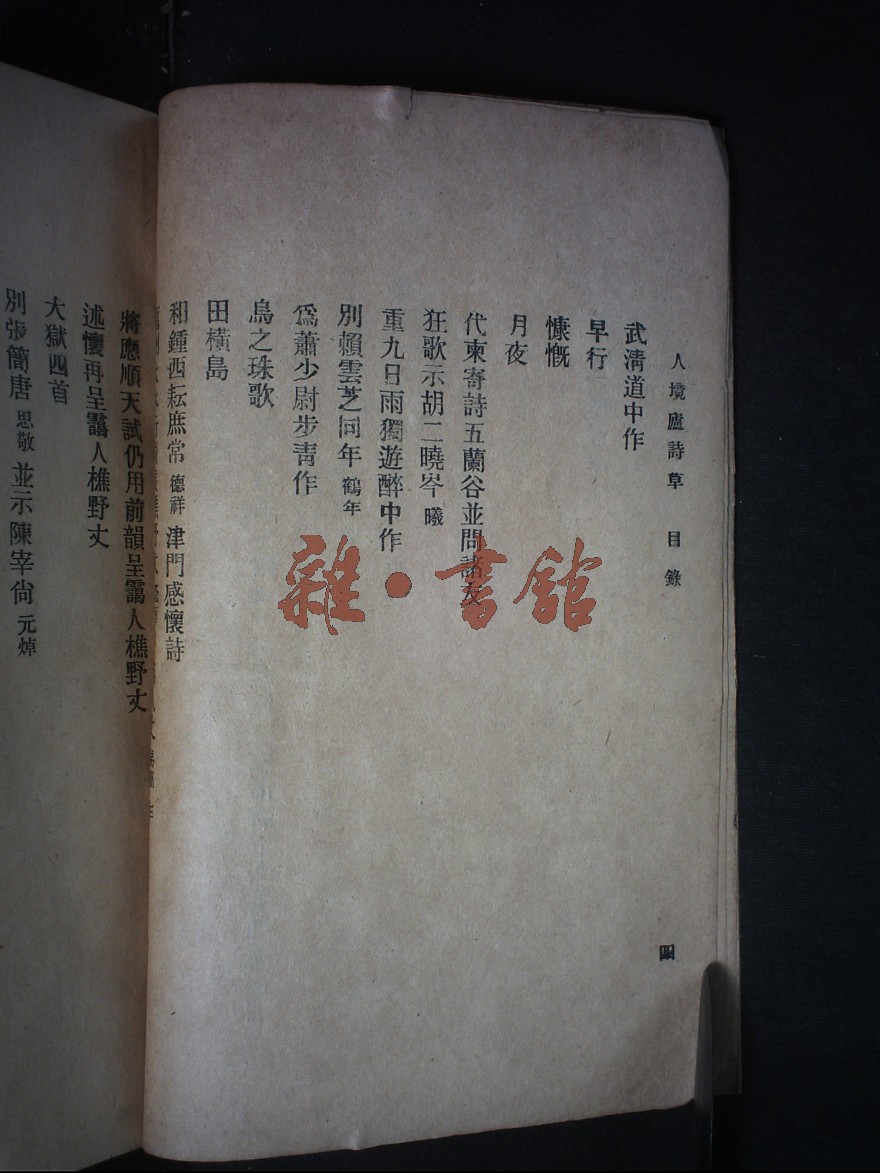 人境廬詩草 目錄
武淸道中作
早行
慷慨
月夜
代柬寄詩五蘭谷並問諸友
狂歌示胡二曉岑 曦
重九日雨獨遊醉中作
別賴雲芝同年 鶴年
爲蕭少尉步靑作
烏之珠歌
田橫島
和鍾西耘庶常 德祥 津門感懷詩
四
將應順天試仍用前韻呈靄人樵野丈
述懷再呈靄人樵野丈
大獄四首
別張簡唐 思敬 並示陳宰尙 元焯
雜·書館